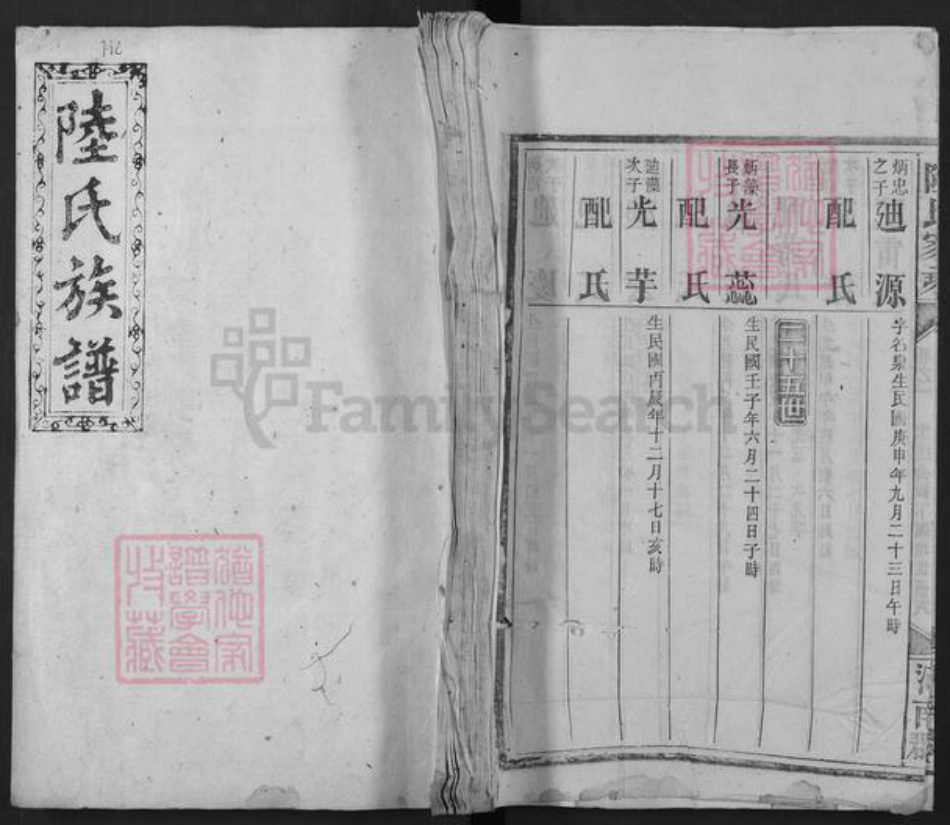 陸氏族譜
炳忠之子 廸源 字名泉生民國庚申年九月二十三日午時
配氏
二十五世
炳藻長子 光蕊 生民國壬子年六月二十四日子時
配氏
廸藻次子 光芋 生民國丙辰年十二月十七日亥時
配氏
譜學會
收藏
FamilySearch